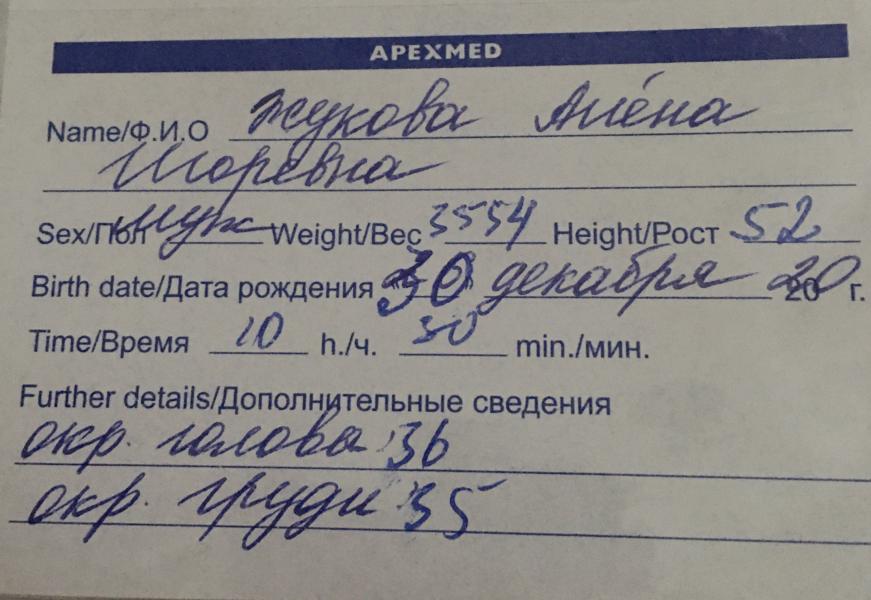 APEXMED
Name/Ф.И.О Жукова Алёна
Игоревна
Sex/Пол муж Weight/Вес 3554 Height/Рост 52
Birth date/Дата рождения 30 декабря 2020 г.
Time/Время 10 h./ч. 30 min./мин.
Further details/Дополнительные сведения
окр. голова 36
окр. груди 35